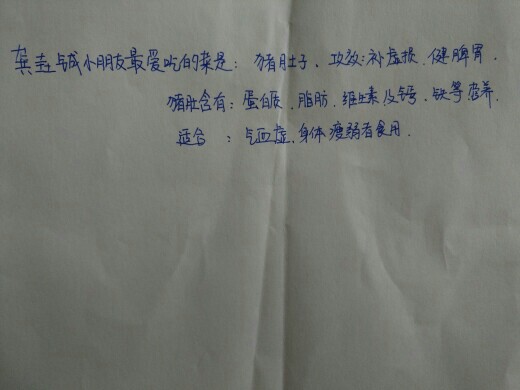 龚喆铖小朋友最爱吃的菜是：猪肚子、功效：补虚损、健脾胃，
猪肚含有：蛋白质、脂肪、维生素及钙、铁等营养.
适合：气血虚、身体瘦弱者食用.